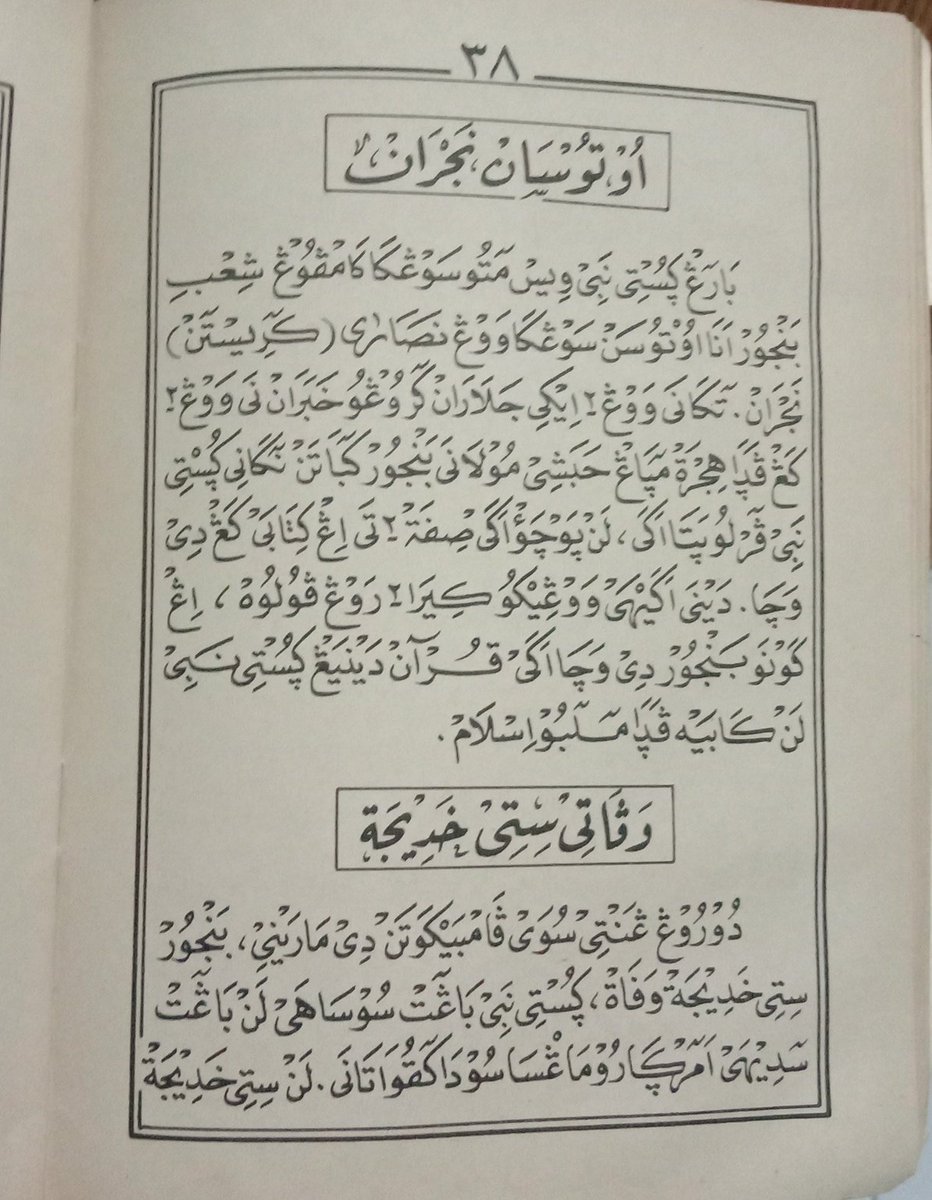 ٣٨
اُوْتوُسَانْ نَجْرَانْ
بَارَڠْ ڮُسْتِى نَبِى وِيسْ مَتُو سَوْڠكَا كَامْڤُوْڠْ شِعْبِ
بَنْجُوْرْ اَنَا اُوْتُوسَنْ سَوْڠكَا وَوْڠ نَصَارٰى (كَرِيسْتَنْ)
نَجْرَانْ. تَكَانَى وَوْڠ٢ اِيْكِى جَلَارَانْ كَرُوْڠُو خَبَرَانْ نَى وَوْڠ٢
كَڠْ ڤَڎَا هِجْرَةْ مَيَاڠْ حَبَشِىْ مُوْلَانَى بَنْجُوْرْ كَبَاتَنْ نَكَانِى ڮُسْتِى
نَبِىْ ڤَرْلُو يَتَاأَكَى، لَنْ يَوْچَوْأَكَى صِفَةْ٢ تَى اِڠْ كِتَابَىْ كَڠْ دِىْ
وَچَا. دَيْنَى اَكَيْهَىْ وَوْڠِيْكُوْ كِيرَا٢ رَوْڠْ ڤُوْلُوْهْ، اِڠْ
كَوْنَوْ بَنْجُوْرْ دِىْ وَچَاأَكَىْ قُرْآنْ دَيْنِيڠْ ڮُسْتِىْ نَبِىْ
لَنْ كَابَيْه ڤَڎَا مَلْبُوْ اِسْلَامْ.
وَفَاتِىْ سِتِىْ خَدِيْجَةْ
دُوْرُوْڠْ ڠَنْتِىْ سُوَىْ ڤَامْبَيْكَوْتَنْ دِىْ مَارَيْنِىْ، بَنْجُوْرْ
سِتِى خَدِيْجَةْ وَفَاةْ، ڮُسْتِى نَبِىْ بَاڠَتْ سُوْسَاهَىْ لَنْ بَاڠَتْ
سَدِيْهَىْ اَمَرْڮَا رُوْمَاڠْسَا سُوْدَا كَقُوَاتَانَى. لَنْ سِتِى خَدِيْجَةْ